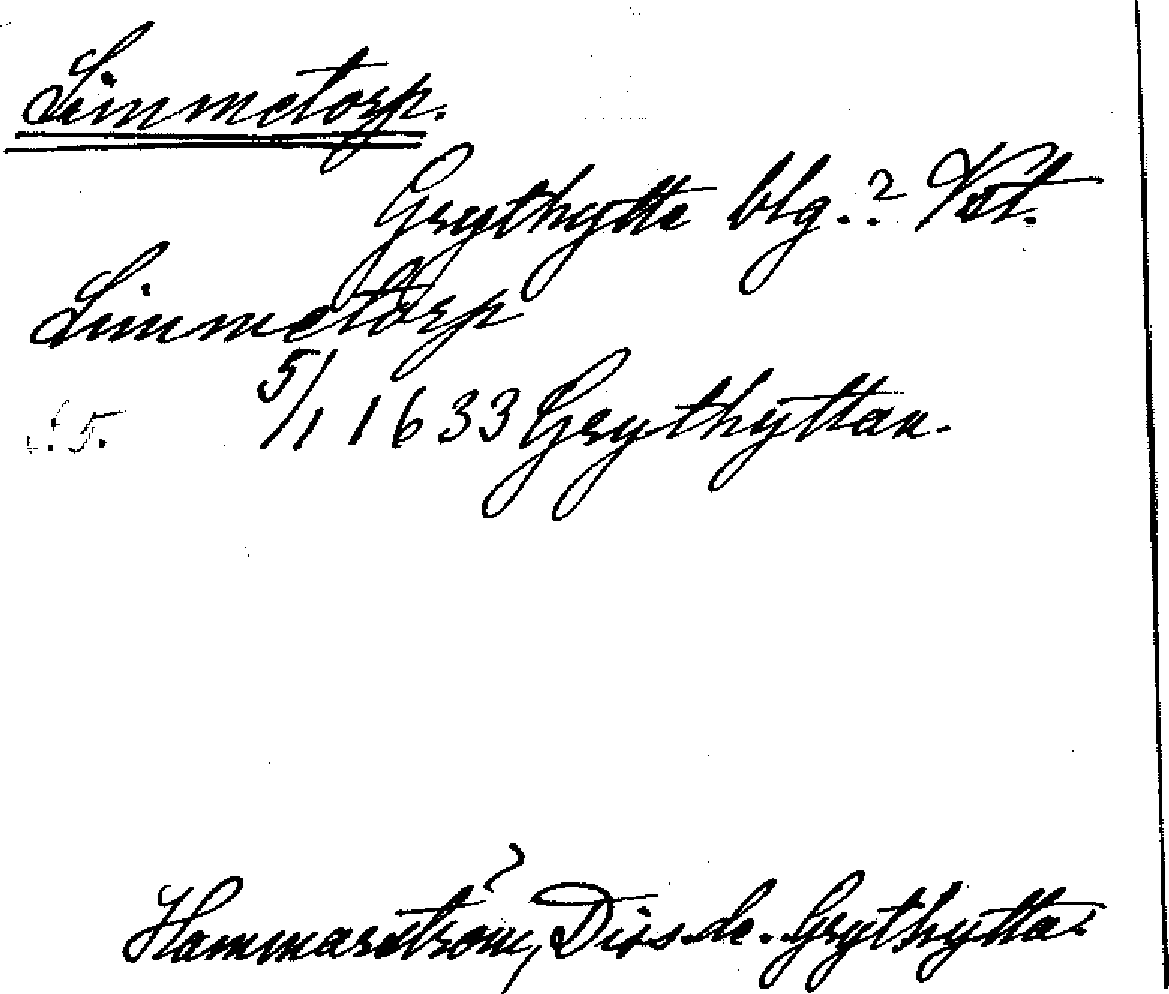 Simmetorp.
Grythytte blg.? Vstm.
Simmetorp
5/1 1633 Grythyttan.
Hammarström, Diss. de Grythytta.